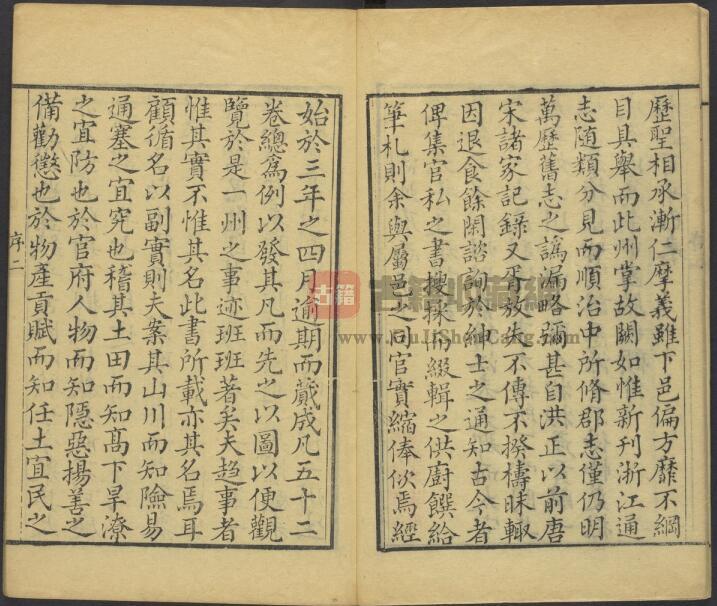 歷聖相承漸仁摩義雖下邑偏方靡不綱
目具舉而此州掌故闕如惟新刊浙江通
志隨類分見而順治中所脩郡志僅仍明
萬歷舊志之譌漏略彌甚自洪正以前唐
宋諸家記錄又胥放失不傳不揆檮昧輒
因退食餘閑諮詢於紳士之通知古今者
俾集官私之書搜採而綴輯之供廚饌給
筆札則余與屬邑之同官實縮俸佽焉經
始於三年之四月逾期而蕆成凡五十二
卷總為例以發其凡而先之以圖以便觀
覽於是一州之事迹班班著矣夫趋事者
惟其實不惟其名此書所載亦其名焉耳
顧循名以副實則夫案其山川而知險易
通塞之宜究也稽其土田而知高下旱潦
之宜防也於官府人物而知隱惡揚善之
備勸懲也於物產貢賦而知任土宜民之
序二
古籍
古籍收藏網
www.GuJiShouCang.com